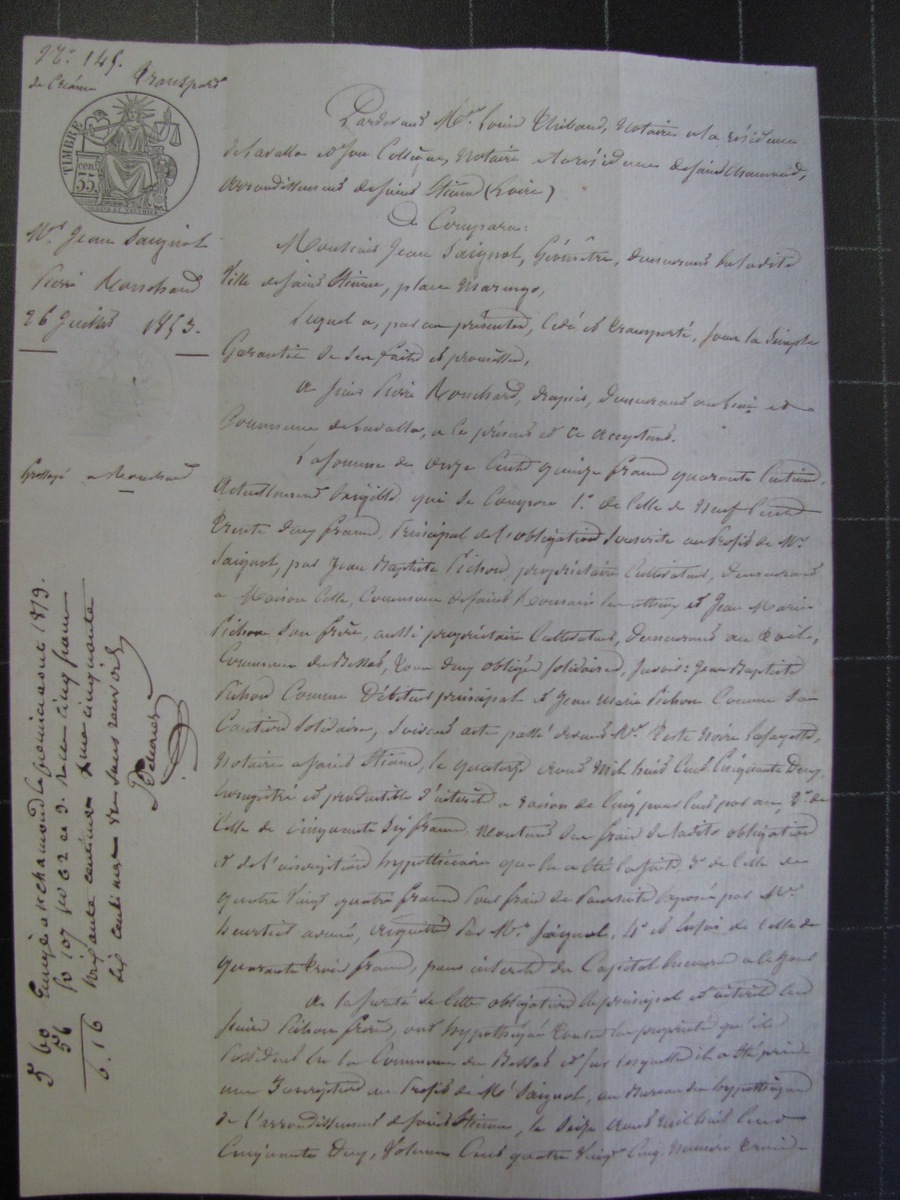 No. 145.
Transport
de Créance
TIMBRE
35 cen
Mrs Jean Saignol
Pierre Ronchard
26 Juillet 1853.
Grossoyé a Ronchard
Pardevant Me. Louis Thibaud, Notaire a la résidence
de Lavalla et son Collègue, Notaire a la résidence de Saint Chamond,
arrondissement de Saint Etienne (Loire)
a Comparu:
Monsieur Jean Saignol, Géomètre, demeurant en ladite
Ville de Saint Etienne, place Marengo,
Lequel a, par ces présentes, cédé et transporté, sous la simple
Garantie de ses faits et promesses,
a sieur Pierre Ronchard, demeurant au lieu et
Commune de Lavalla, a ce présent et ce acceptant.
La somme de onze cent quinze francs quarante centimes
Actuellement exigible qui se compose 1°. de celle de Neuf cent
trente deux francs, Principal de l'obligation souscrite au Profit de Mr.
Saignol, par Jean Baptiste Pichon, propriétaire Cultivateur, demeurant
a Maison Cette, Commune de Saint Romain et Jean Marie
Pichon son frère, aussi propriétaire Cultivateur, demeurant au Toil,
Commune du Bessat, tous deux obligés solidaires, savoir: Jean Baptiste
Pichon Comme Débiteur principal et Jean Marie Pichon Comme sa
Caution solidaire, suivant acte passé devant Me. Teste Noire Lafayette,
Notaire a Saint Etienne, le quatorze aout Mil huit Cent Cinquante Deux,
Enregistré et productible d'intérêt a raison de Cinq pour Cent par an, 2°. de
Celle de cinquante six francs Montant des frais de ladite obligation
et de l'inscription hypothécaire qui en a été la suite, 3°. de celle de
quatre vingt quatre francs pour frais de Poursuite exposés par Me.
avoué, acquittés Par Mr. Saignol, 4° et enfin de celle de
quarante trois francs, pour intérêt du Capital
a la sureté de cette obligation en principal et intérêt les
sieurs Pichon frères, ont hypothéqué toutes les propriétés qu'ils
Possèdent en la Commune du Bessat et sur lesquelles il a été pris
une Inscription au Profit de Mr Saignol, au Bureau des hypothèques
de l'arrondissement de Saint Etienne, le Seize aout Mil huit Cent
Cinquante Deux, Volume Cent quatre Vingt Cinq, Numéro Trois
Enregistré a St Chamond le premier aout 1853.
fo 107 Vo C 2 et 3. Reçu cinq francs
soixante centimes cinquante
six centimes
5 60
56
6.16